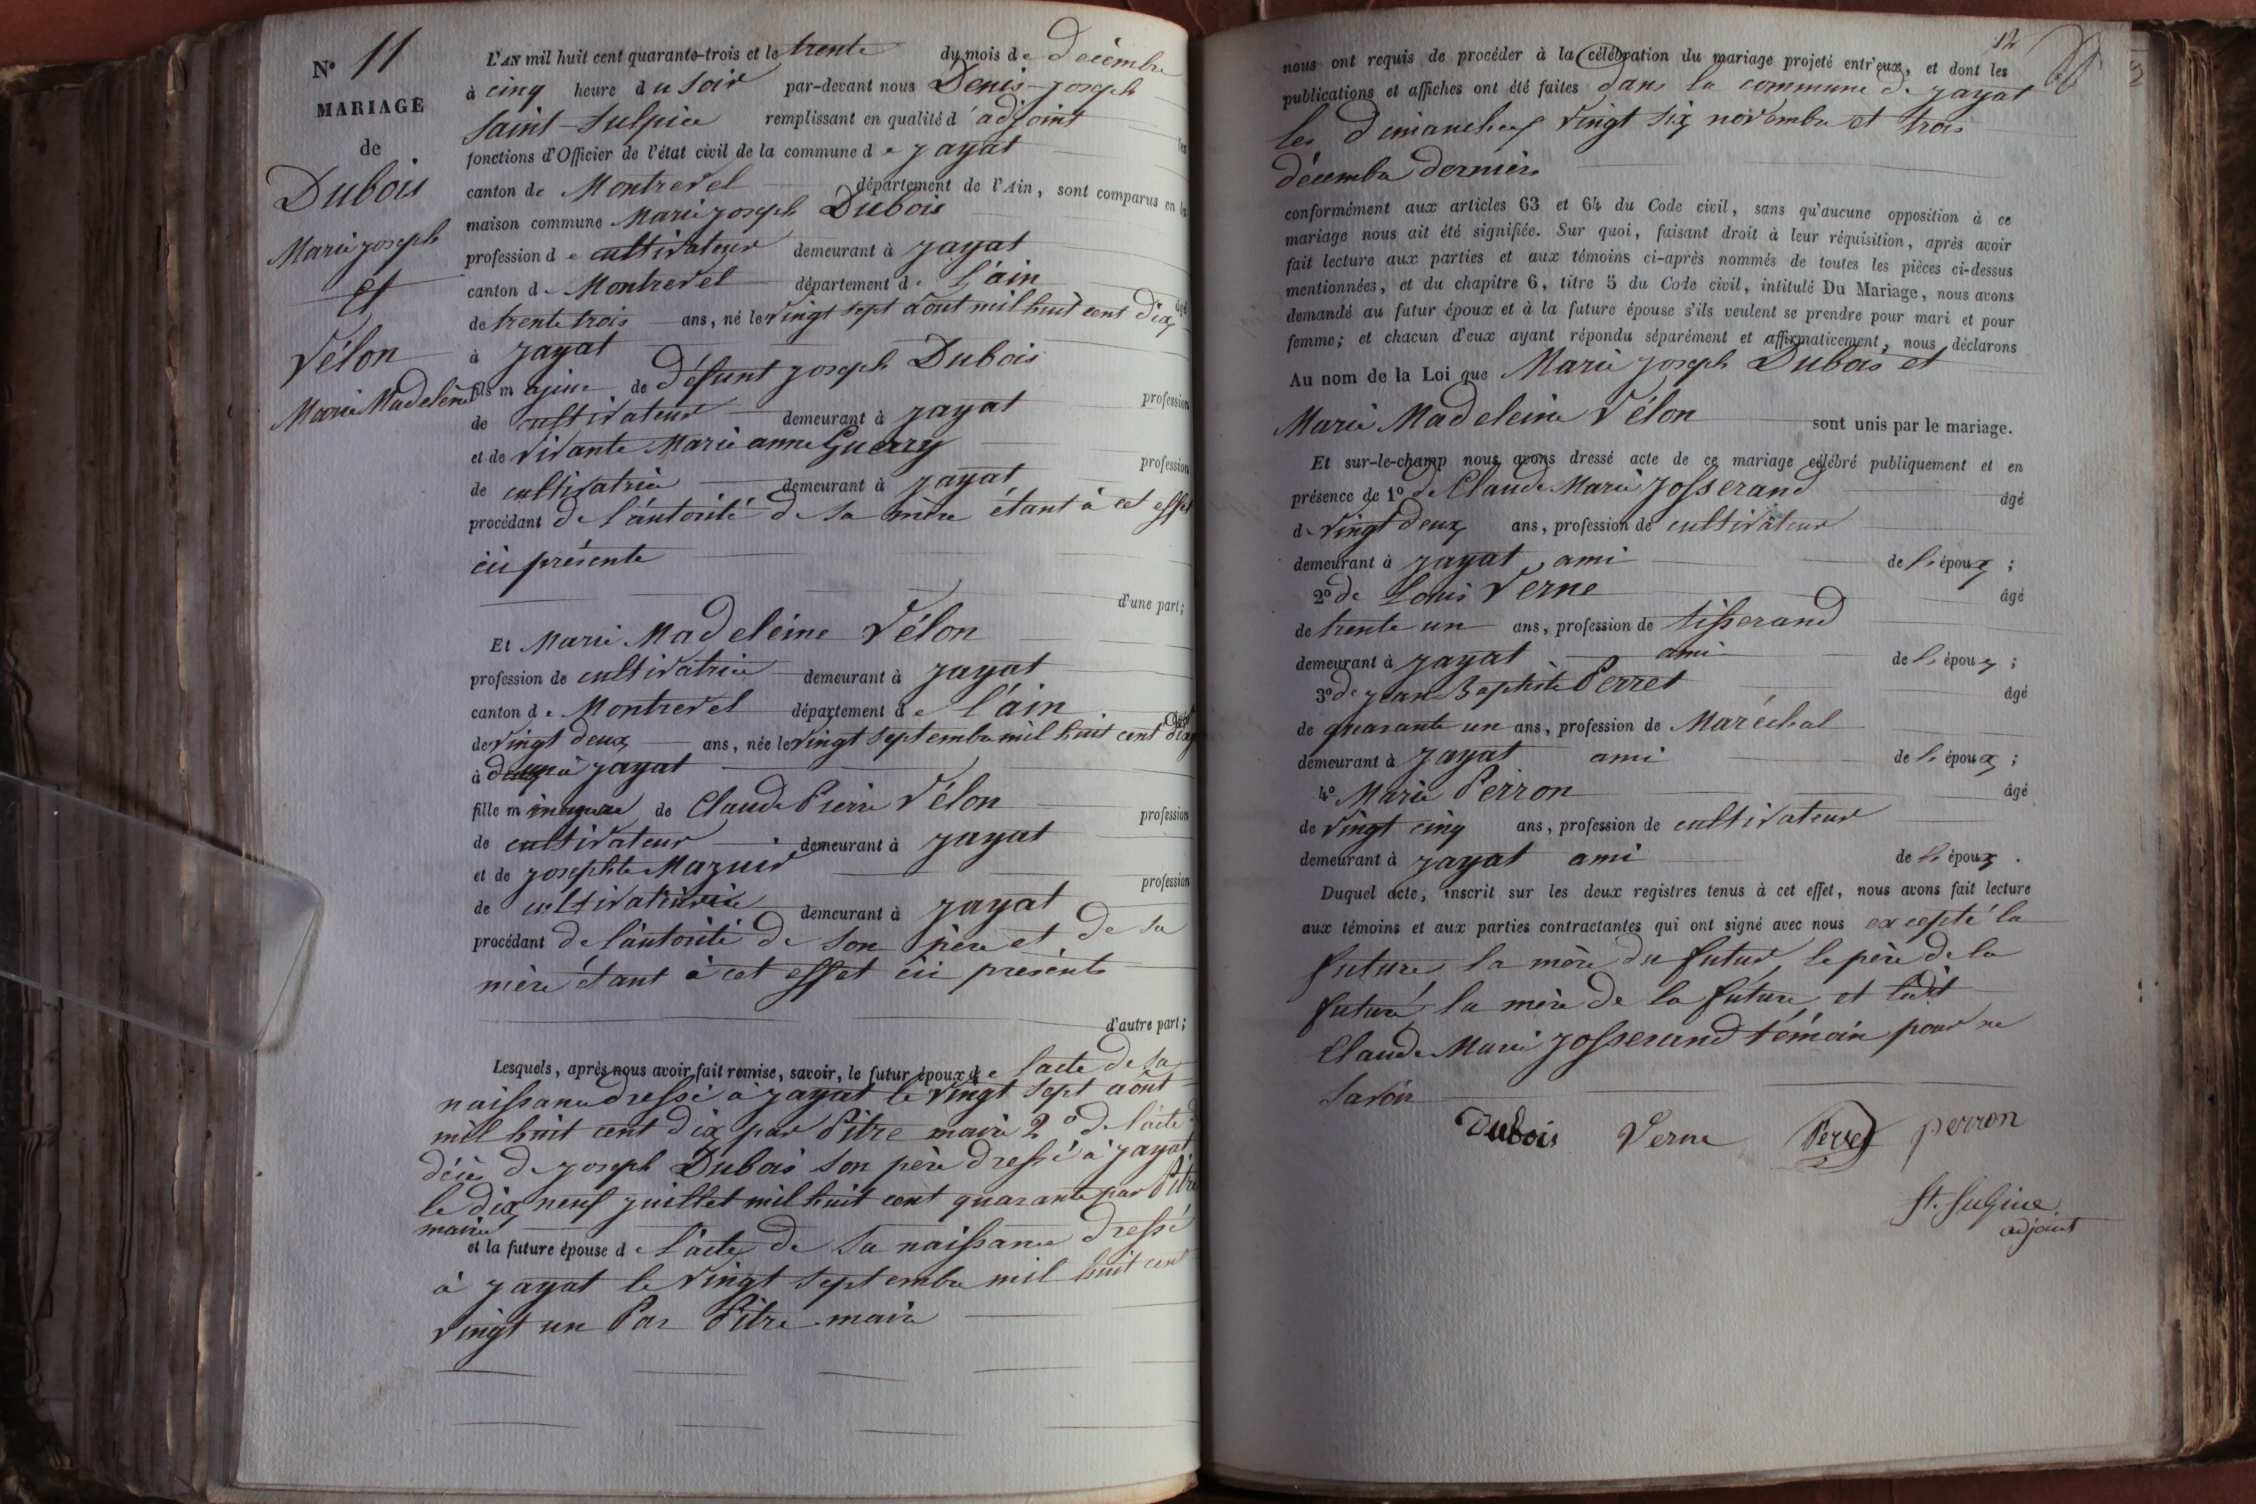 N° 11
MARIAGE
de
Dubois
Marie joseph
et
Vélon
Marie Madeleine
L'AN mil huit cent quarante-trois et le trente du mois de Décembre
à cinq heure du soir par-devant nous Denis-joseph
Saint-Sulpice remplissant en qualité d'adjoint les
fonctions d'Officier de l'état civil de la commune de jayat
canton de Montrevel département de l'Ain, sont comparus en la
maison commune Marie joseph Dubois
profession de cultivateur demeurant à jayat
canton de Montrevel département de l'ain âgé
de trente trois ans, né le vingt sept août mil huit cent dix
à jayat
fils majeur de défunt joseph Dubois profession
de cultivateur demeurant à jayat
et de vivante Marie anne Guerry profession
de cultivatrice demeurant à jayat
procédant de l'autorité de sa mère étant à cet effet
ici présente
d'une part;
Et Marie Madeleine Vélon
profession de cultivatrice demeurant à jayat
canton de Montrevel département de l'ain âgée
de vingt deux ans, née le vingt septembre mil huit cent
à jayat
fille m de Claude Pierre Vélon profession
de cultivateur demeurant à jayat
et de josephte Mazuir profession
de cultivatrice demeurant à jayat
procédant de l'autorité de son père et de sa
mère étant à cet effet ici présents
d'autre part;
Lesquels, après nous avoir fait remise, savoir, le futur époux de l'acte de sa
naissance dressé à jayat le vingt sept août
mil huit cent dix par Pitre maire 2° de l'acte de
décès de joseph Dubois son père dressé à jayat
le dix neuf juillet mil huit cent quarante par Pitre
maire
et la future épouse de l'acte de sa naissance dressé
à jayat le vingt septembre mil huit cent
vingt un Par Pitre maire
12
nous ont requis de procéder à la célébration du mariage projeté entr'eux, et dont les
publications et affiches ont été faites dans la commune de jayat
les dimanches vingt six novembre et trois
décembre derniers
conformément aux articles 63 et 64 du Code civil, sans qu'aucune opposition à ce
mariage nous ait été signifiée. Sur quoi, faisant droit à leur réquisition, après avoir
fait lecture aux parties et aux témoins ci-après nommés de toutes les pièces ci-dessus
mentionnées, et du chapitre 6, titre 5 du Code civil, intitulé Du Mariage, nous avons
demandé au futur époux et à la future épouse s'ils veulent se prendre pour mari et pour
femme; et chacun d'eux ayant répondu séparément et affirmativement, nous déclarons
Au nom de la Loi que Marie joseph Dubois et
Marie Madeleine Vélon sont unis par le mariage.
Et sur-le-champ nous avons dressé acte de ce mariage célébré publiquement et en
présence de 1° de Claude Marie josserand âgé
de vingt deux ans, profession de cultivateur
demeurant à jayat, ami de l'époux;
2° de Louis Verne âgé
de trente un ans, profession de tisserand
demeurant à jayat ami de l'époux;
3° de jean Baptiste Perret âgé
de quarante un ans, profession de Maréchal
demeurant à jayat ami de l'époux;
4° Marie Perron âgé
de vingt cinq ans, profession de cultivateur
demeurant à jayat ami de l'époux.
Duquel acte, inscrit sur les deux registres tenus à cet effet, nous avons fait lecture
aux témoins et aux parties contractantes qui ont signé avec nous excepté la
future, la mère du futur, le père de la
future, la mère de la future et ledit
Claude Marie josserand témoin pour ne
savoir
Dubois Verne Perret perron
St. Sulpice
adjoint